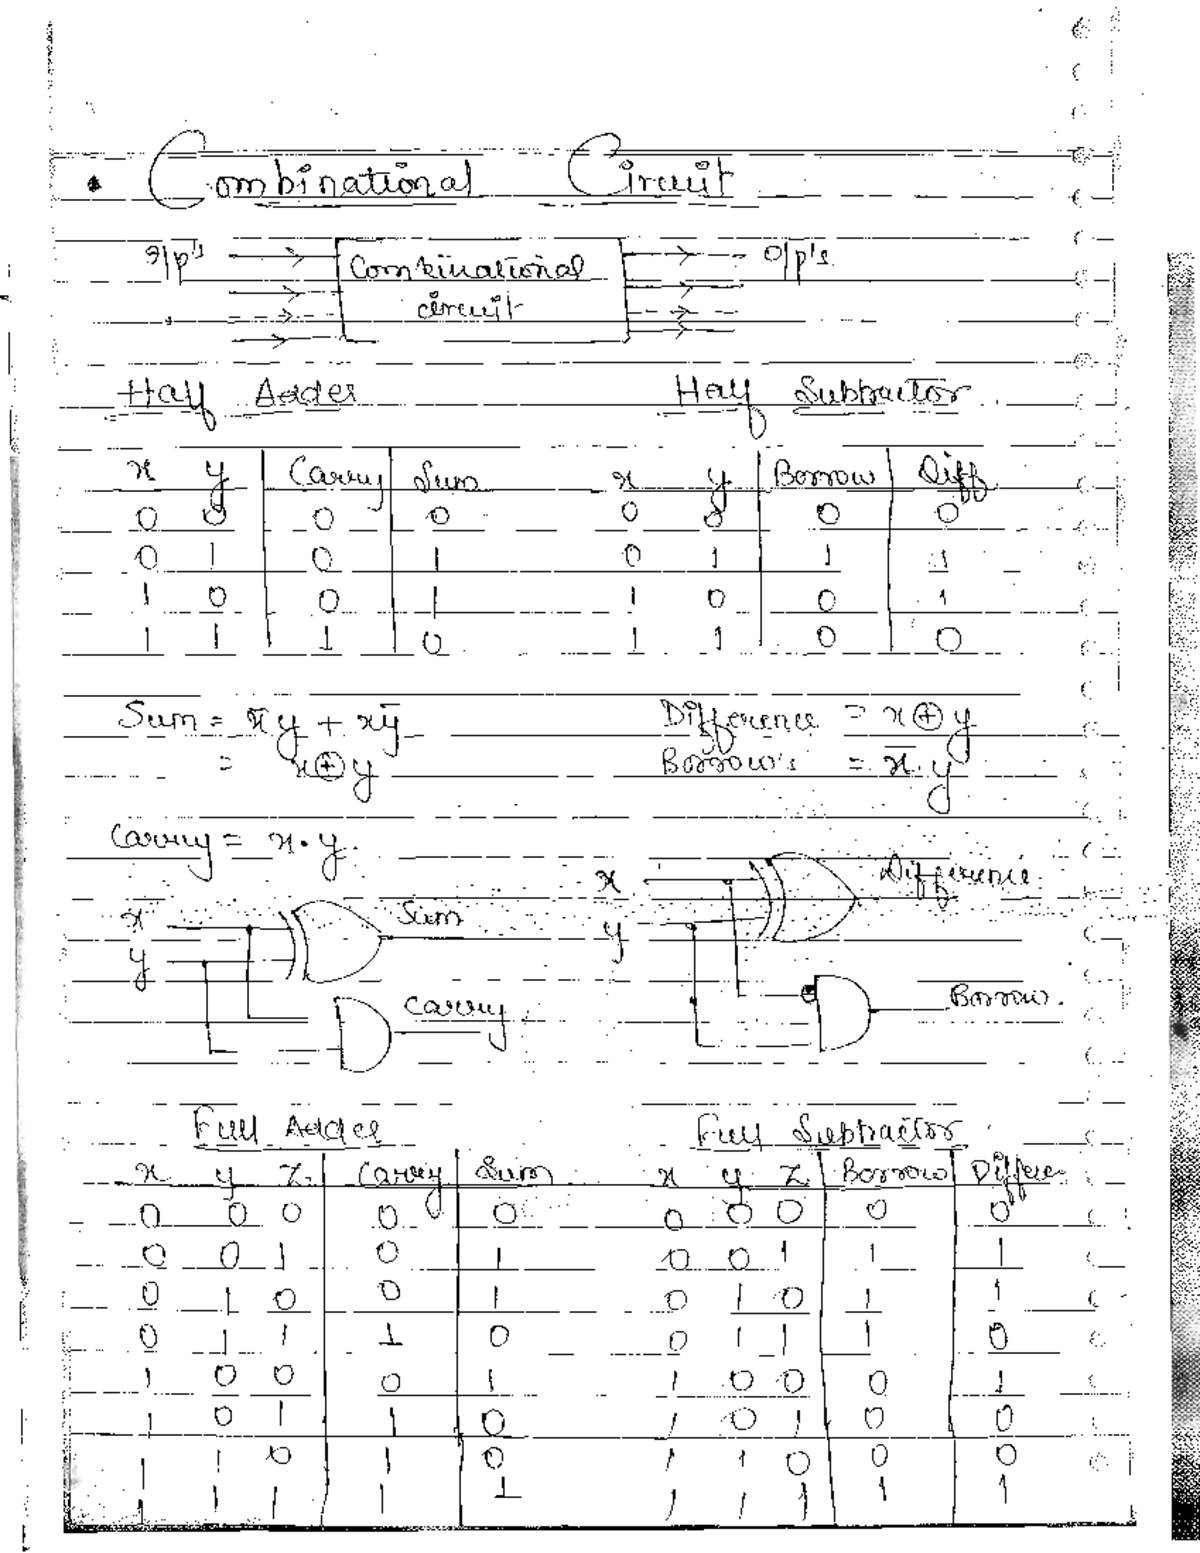 Combinational Circuit
I/p's Combinational circuit O/p's
Half Adder
x y Carry Sum
0 0 0 0
0 1 0 1
1 0 0 1
1 1 1 0
Sum = x̅y + xy̅
= x⊕y
Carry = x·y
x
y
Sum
Carry
Half Subtractor
x y Borrow Diff
0 0 0 0
0 1 1 1
1 0 0 1
1 1 0 0
Difference = x⊕y
Borrow's = x̅·y
x
y
Difference
Borrow.
Full Adder
x y z Carry Sum
0 0 0 0 0
0 0 1 0 1
0 1 0 0 1
0 1 1 1 0
1 0 0 0 1
1 0 1 1 0
1 1 0 1 0
1 1 1 1 1
Full Subtractor
x y z Borrow Differe
0 0 0 0 0
0 0 1 1 1
0 1 0 1 1
0 1 1 1 0
1 0 0 0 1
1 0 1 0 0
1 1 0 0 0
1 1 1 1 1